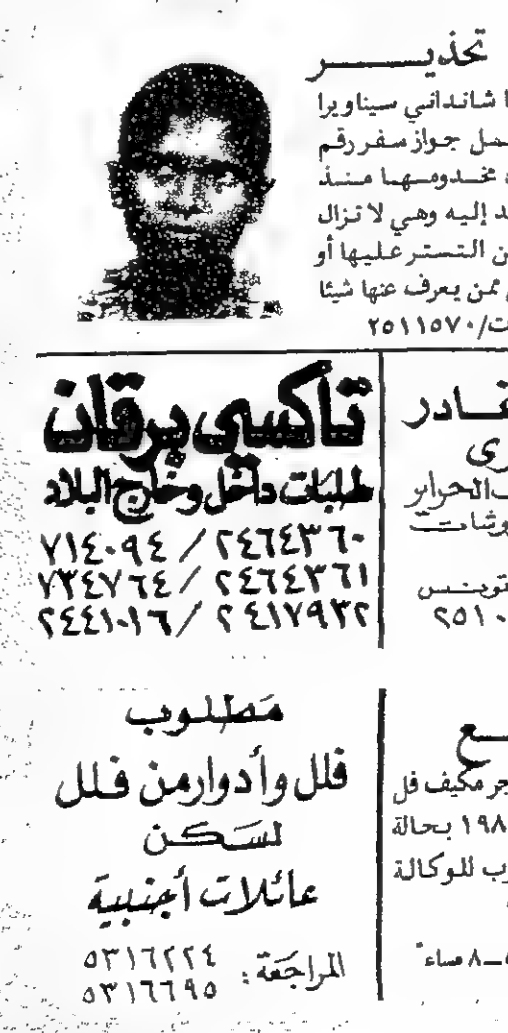 تحذيـــــر
شانداني سيناويرا
جواز سفر رقم
مخدومها منذ
إليه وهي لا تزال
التستر عليها أو
ممن يعرف عنها شيئا
ت/٢٥١١٥٧٠
تاكسي برقان
طلبات داخل وخارج البلاد
٢٤٦٤٣٦٠ / ٧١٤٠٩٤
٢٤٦٤٣٦١ / ٧٣٤٧٦٤
٢٤١٧٩٣٢ / ٢٤٤١٠١٦
الحراير
تونس
٢٥١٠
مَطلوب
فلل وأدوار من فلل
لسَكن
عائلات أجنبية
المراجَعة: ٥٣١٦٢٢٤
٥٣١٦٦٩٥
مكيف
١٩٨ بحالة
للوكالة
٨ مساءً